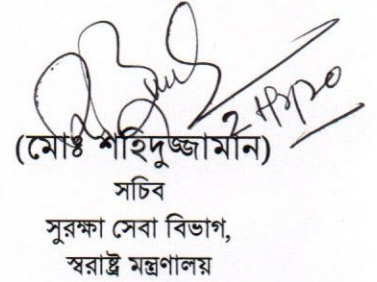 (মোঃ শহিদুজ্জামান)
সচিব
সুরক্ষা সেবা বিভাগ,
স্বরাষ্ট্র মন্ত্রণালয়